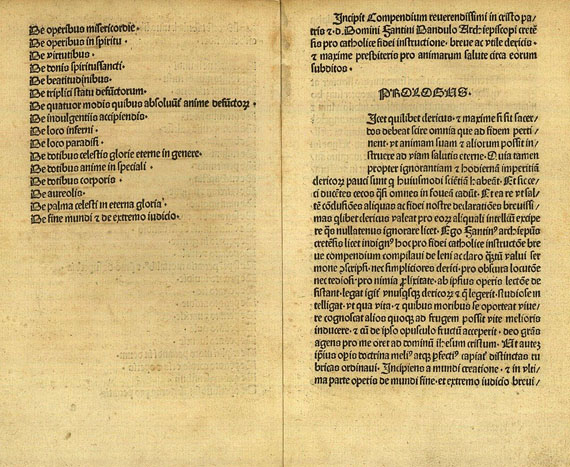 De operibus misericordie.
De operibus in spiritu.
De virtutibus.
De donis spiritussancti.
De beatitudinibus.
De triplici statu defūctorum.
De quatuor modis quibus absoluūt̄ anime defūctoꝝ.
De indulgentiis accipiendis.
De loco inferni.
De loco paradisi.
De dotibus celestis glorie eterne in genere.
De dotibus anime in speciali.
De dotibus corporis.
De aureolis.
De palma celesti in eterna gloria.
De fine mundi ⁊ de extremo iudicio.
Incipit Compendium reuerendissimi in cristo pa/
tris ⁊ .d. Domini Fantini Dandulo Archiepiscopi cretē
sis pro catholice fidei instructione. breue ac vtile clericis.
⁊ maxime presbiteris pro animarum salute circa eorum
subditos.
PROLOGVS.
Icet quilibet clericus. ⁊ maxime si sit sacer/
dos debeat scire omnia que ad fidem perti/
nent. vt animam suam ⁊ aliorum possit in/
struere ad viam salutis eterne. Quia tamen
propter ignorantiam ⁊ hodiernā imperitiā
clericoꝝ pauci sunt q̄ huiusmodi sciētiā habeāt. Et sic ce/
ci ducētes cecos q̄si omnes in foueā cadūt. Et ea re vt sal/
tē cōclusiōes aliquas ac fidei nostre declaratiōes breuissi/
mas qlibet clericus valeat pro eorꝝ al'quali intellcū excipe
re qs nullatenus ignorare licet. Ego Fantinꝰ archiepūs
cretēsis licet indignꝰ hoc pro fidei catholice instructōe bre
ue compendium compilaui de leni ac claro q̄ꝫtū valui ser
mone ꝓscripsi. nec simpliciores clerici. pro obscura locutōe
nec tediosi. pro nimia ꝓlixitate. ab ipsius operis lectōe de
sistant. legat igit̄ vnusqsqꝫ clericoꝝ ⁊ q̄ legerit. studiose in
telligat. vt qua vita. ⁊ quibus moribus se oporteat viue/
re cognoscat alios quoqꝫ ad frugem possit vite melioris
inducere. ⁊ cū de ipso opusculo fructū acceperit. deo grās
agens pro me oret ad dominū ihesum cristum. Vt auteꝫ
ipsius opis doctrina meliꝰ atqꝫ ꝑfectiꝰ capiat̄ distinctas ru
bricas ordinaui. Incipiens a mundi creatione. ⁊ in vlti/
ma parte operis de mundi fine. et extremo iudicio breui/